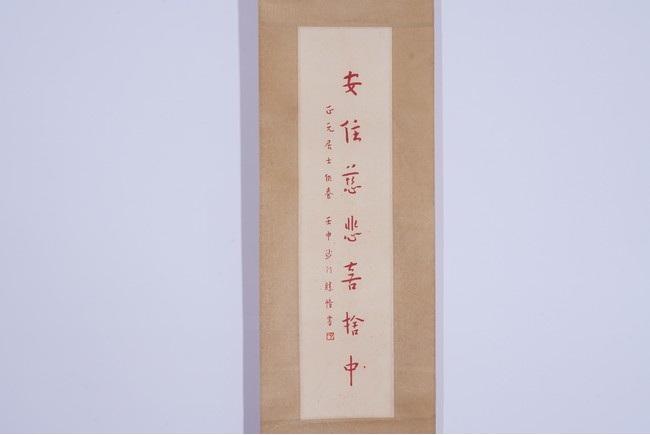 安住慈悲喜捨中
正元居士供養 壬申 沙門勝悟書